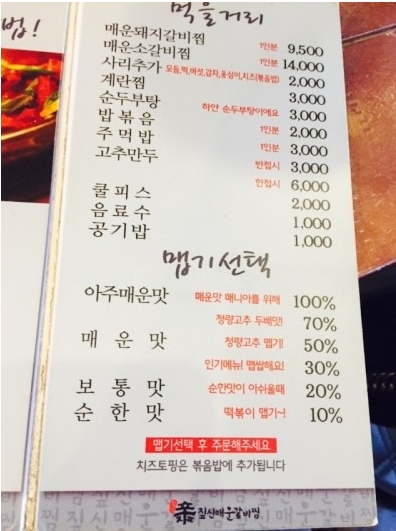 법!
먹을거리
매운돼지갈비찜 1인분 9,500
매운소갈비찜 1인분 14,000
사리추가 모듬,떡,버섯,감자,옹심이,치즈(볶음밥) 2,000
계란찜 3,000
순두부탕 하얀 순두부탕이에요 3,000
밥볶음 1인분 2,000
주먹밥 1인분 3,000
고추만두 반접시 3,000
한접시 6,000
쿨피스 2,000
음료수 1,000
공기밥 1,000
맵기선택
아주매운맛 매운맛 매니아를 위해 100%
청량고추 두배맛! 70%
매운맛 청량고추 맵기! 50%
인기메뉴! 맵쌉해요! 30%
보통맛 순한맛이 아쉬울때 20%
순한맛 떡볶이 맵기~! 10%
맵기선택 후 주문해주세요
치즈토핑은 볶음밥에 추가됩니다
辛 찜신매운갈비찜